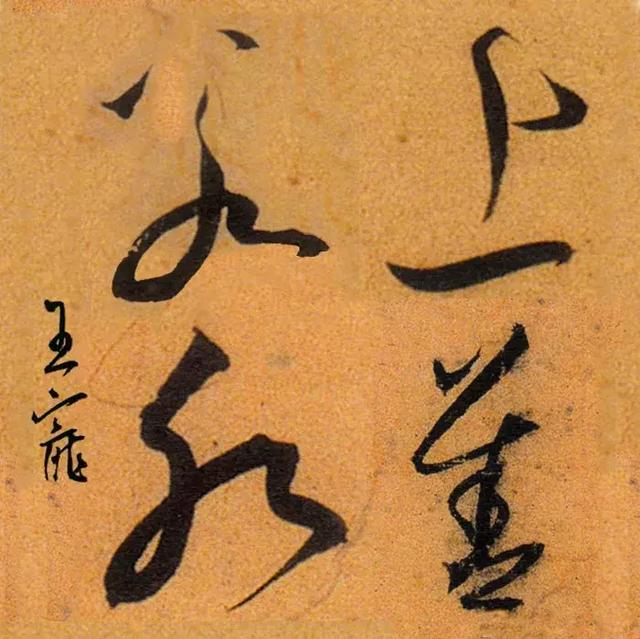 上善
若水
王宠